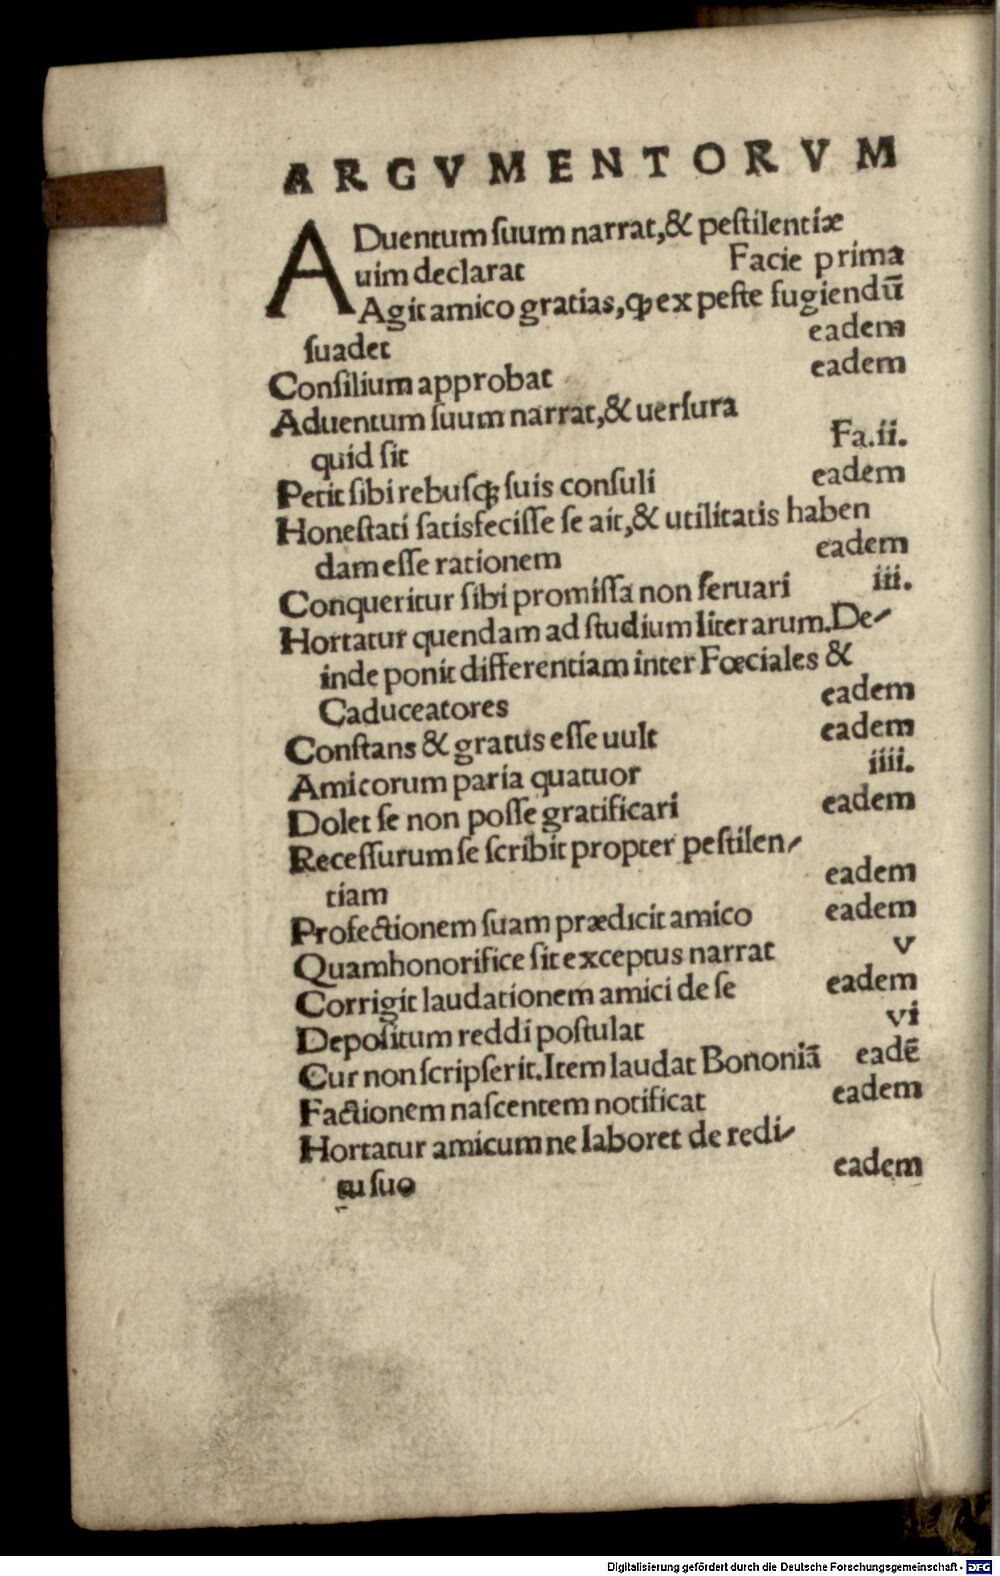 ARGVMENTORVM
ADuentum ſuum narrat,& peſtilentiæ
uim declarat Facie prima
Agit amico gratias,ꝙ ex peſte fugiendū
ſuadet eadem
Conſilium approbat eadem
Aduentum ſuum narrat,& uerſura
quid ſit Fa.ii.
Petit ſibi rebuſqꝫ ſuis conſuli eadem
Honeſtati ſatisfeciſſe ſe ait,& utilitatis haben
dam eſſe rationem eadem
Conqueritur ſibi promiſſa non ſeruari iii.
Hortatur quendam ad ſtudium literarum.De⸗
inde ponit differentiam inter Fœciales &
Caduceatores eadem
Conſtans & gratus eſſe uult eadem
Amicorum paria quatuor iiii.
Dolet ſe non poſſe gratificari eadem
Receſſurum ſe ſcribit propter peſtilen⸗
tiam eadem
Profectionem ſuam prædicit amico eadem
Quamhonorifice ſit exceptus narrat v
Corrigit laudationem amici de ſe eadem
Depoſitum reddi poſtulat vi
Cur non ſcripſerit.Item laudat Bononiā eadē
Factionem naſcentem notificat eadem
Hortatur amicum ne laboret de redi⸗
tu ſuo eadem
Digitalisierung gefördert durch die Deutsche Forschungsgemeinschaft - DFG